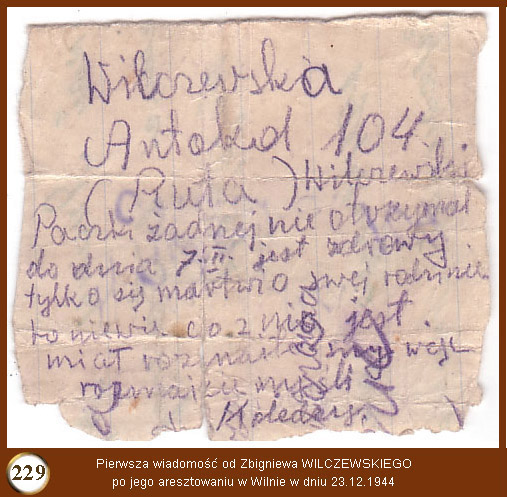 Wilczewska
Antokol 104.
(Ruta) Wilczewski
Paczki żadnej nie otrzymał
do dnia 7.II. jest zdrowy
tylko się martwi o swej rodzinie
bo niewie co z nią jest
miał
rozmaite myśli
Koledzy.
229
Pierwsza wiadomość od Zbigniewa WILCZEWSKIEGO
po jego aresztowaniu w Wilnie w dniu 23.12.1944